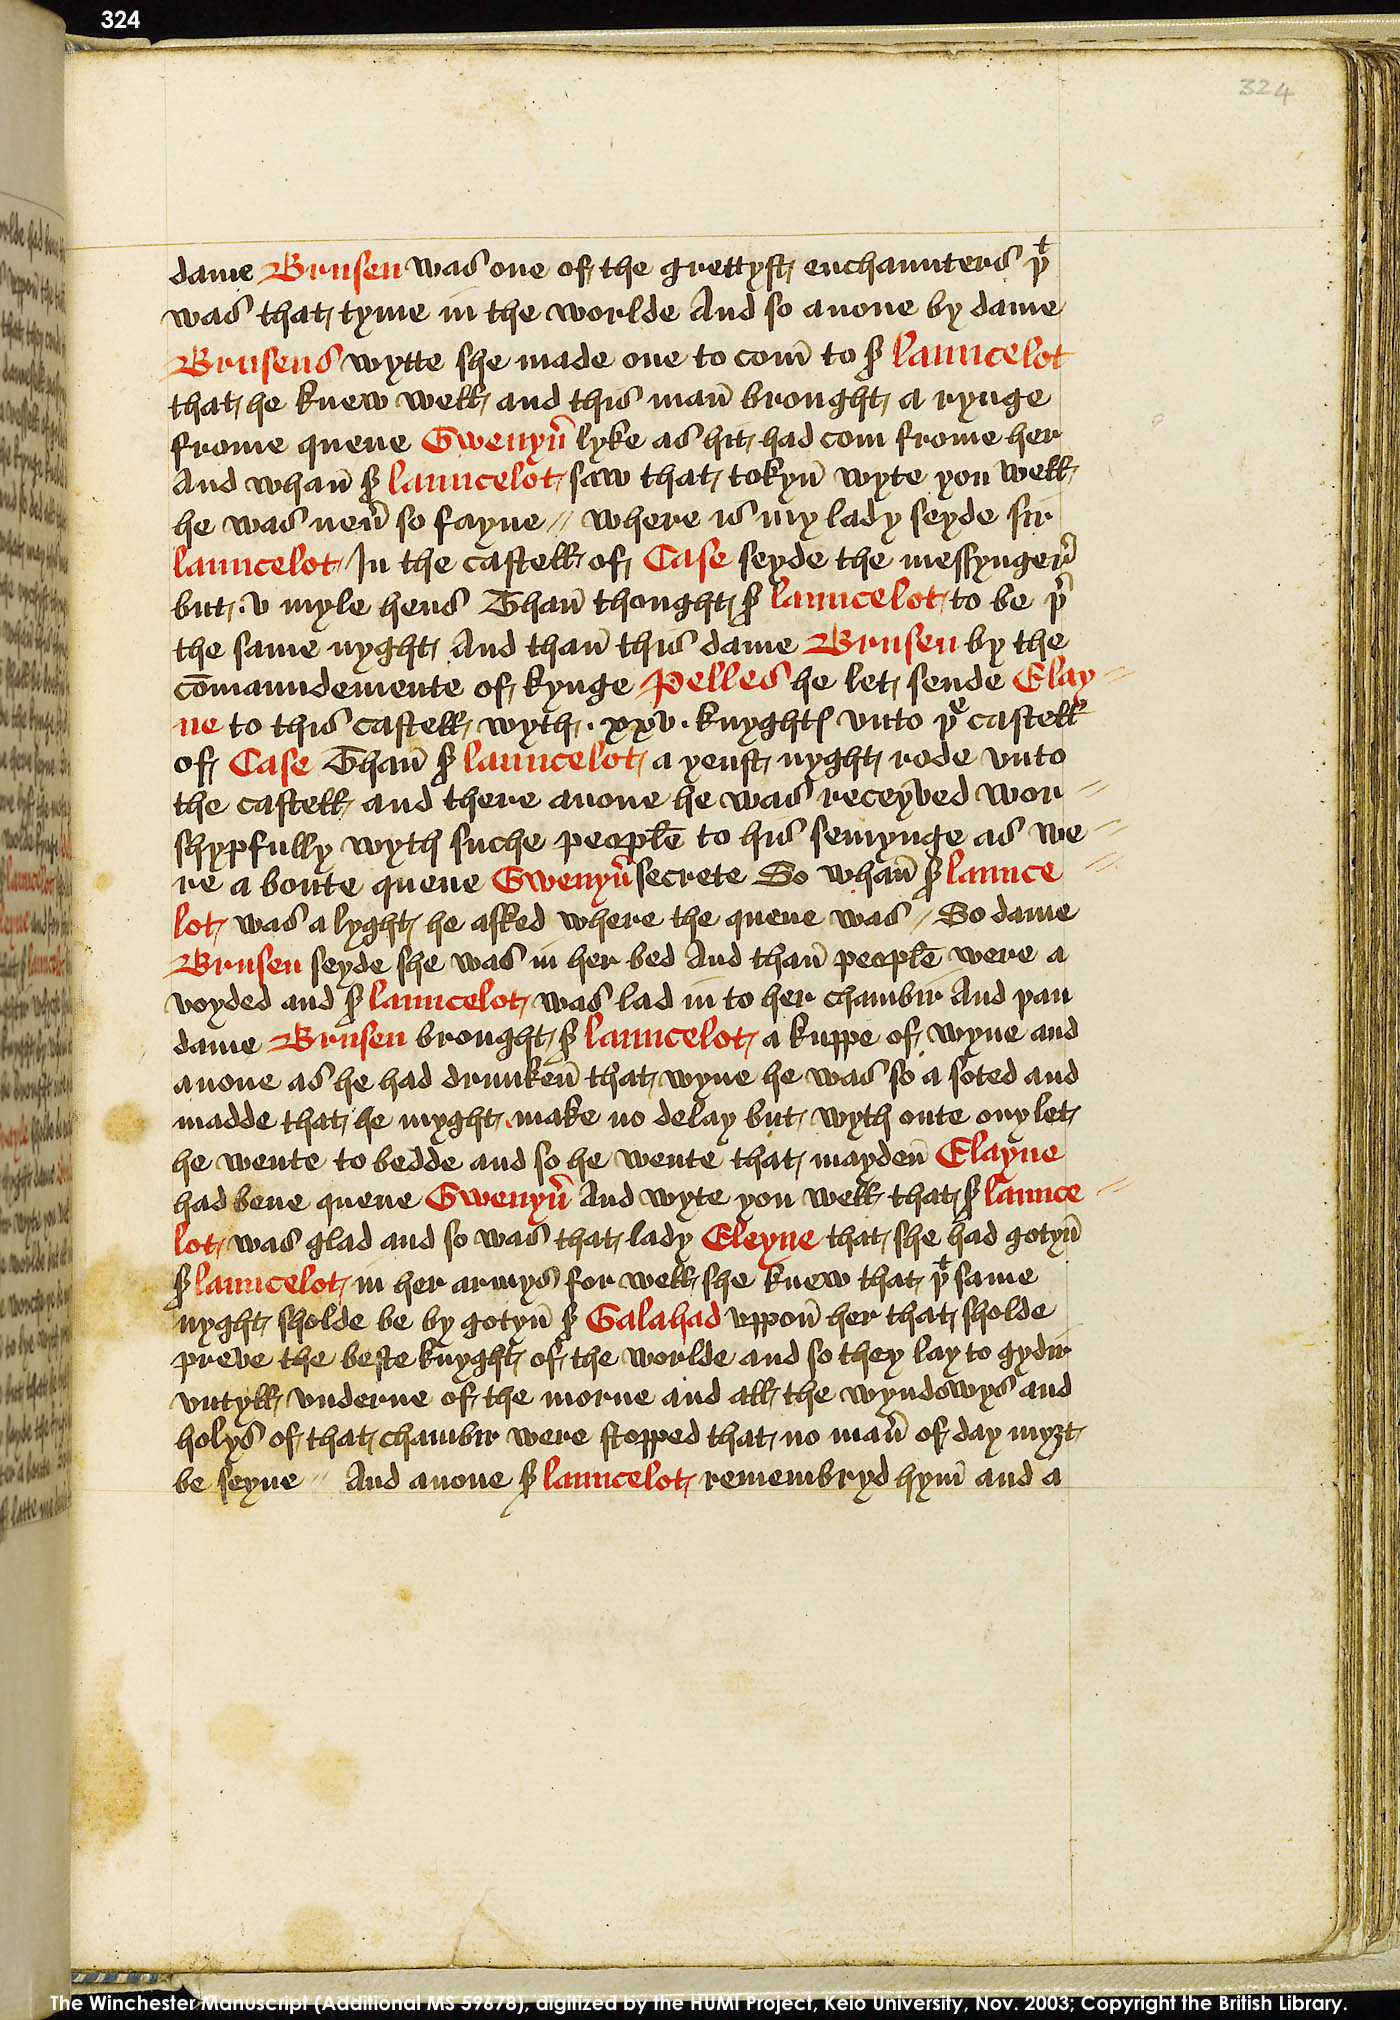 324
324
dame Brusen was one of the grettyst enchaunters þᵗ
was that tyme in the worlde And so anone by dame
Brusens wytte she made one to com̄ to ẜ launcelot
that he knew well and this man̄ brought a rynge
frome quene Gwenyu̇̄ lyke as hit had com frome her
And whan̄ ẜ launcelot saw that tokyn̄ wyte you well
he was neu̇̄ so fayne // where is my lady seyde sir
launcelot / In the castell of Case seyde the messyngeẜ
but · v myle hens Than̄ thought ẜ launcelot to be þ̉
the same nyght And than̄ this dame Brusen by the
cōmaundemente of kynge Pelles he let sende Elay //
ne to this castell wyth · xxv · knyghtꝭ vnto þᵉ castell
of Case Than̄ ẜ launcelot a yenst nyght rode vnto
the castell and there anone he was receyved wor //
shypfully wyth suche people to his semynge as we //
re a boute quene Gwenyu̇̄ secrete So whan̄ ẜ launce //
lot was a lyght he asked where the quene was // So dame
Brusen seyde she was in her bed And than̄ people were a
voyded and ẜ launcelot was lad in to her chambir And þan
dame Brusen brought ẜ launcelot a kuppe of wyne and
anone as he had drunken̄ that wyne he was so a soted and
madde that he myght make no delay but wyth oute ony let
he wente to bedde and so he wente that mayden̄ Elayne
had bene quene Gwenyu̇̄ And wyte you well that ẜ launce //
lot was glad and so was that lady Eleyne that she had gotyn̄
ẜ launcelot in her armys for well she knew that þᵗ same
nyght sholde be by gotyn̄ ẜ Galahad vppon̄ her that sholde
preve the beste knyght of the worlde and so they lay to gydir
vntyll vnderne of the morne and all the wyndowys and
holys of that chambir were stopped that no man̄ of day myȝt
be seyne // And anone ẜ launcelot remembryd hym̄ and a
The Winchester Manuscript (Additional MS 59678), digitized by the HUMI Project, Keio University, Nov. 2003; Copyright the British Library.